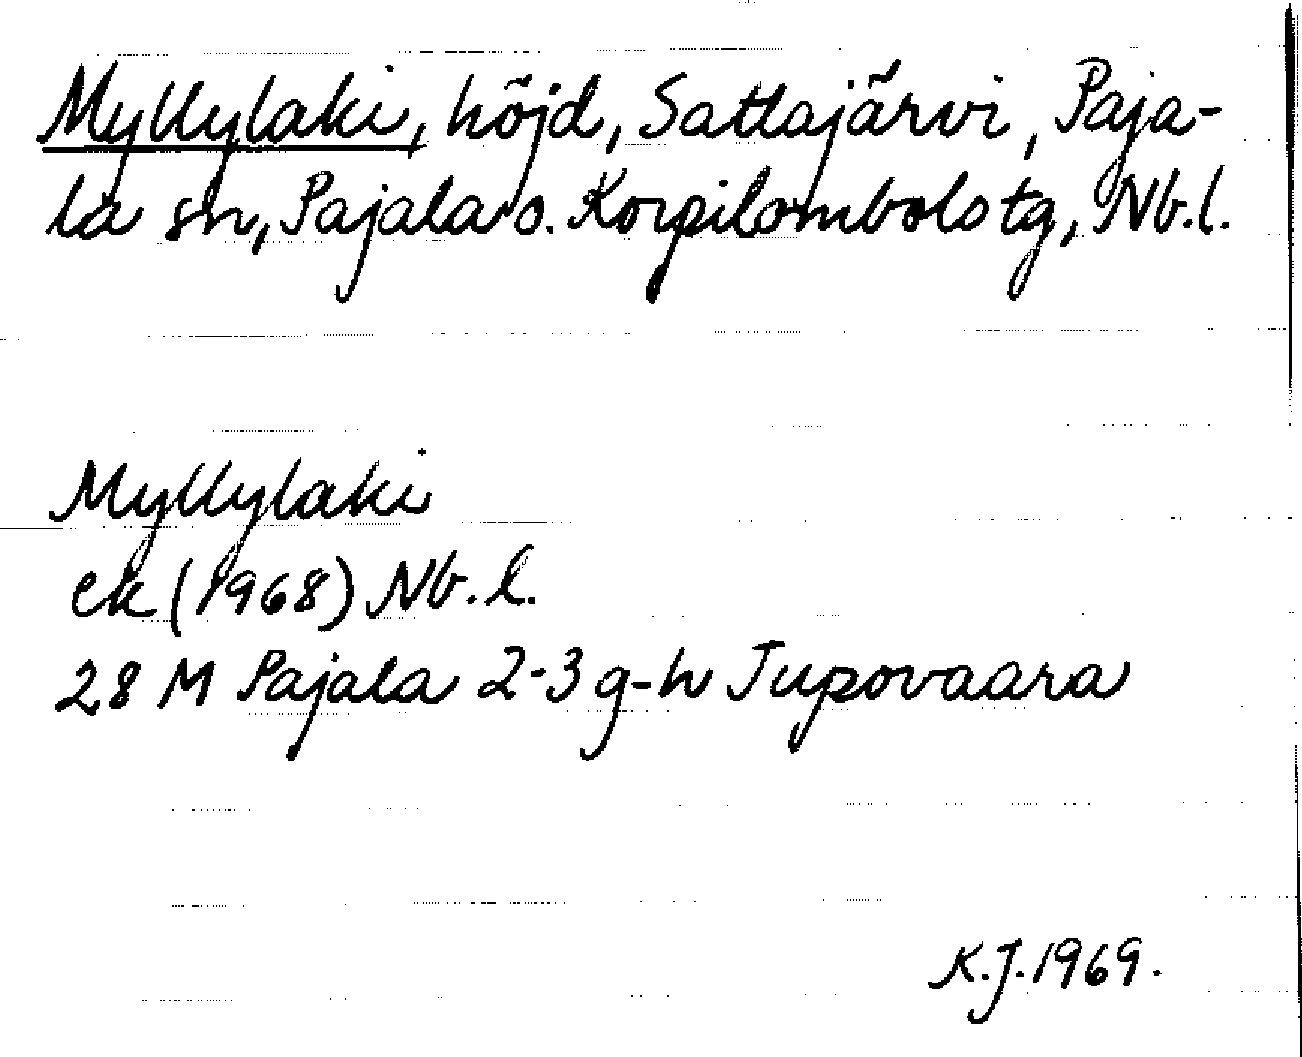 Myllylaki, höjd, Sattajärvi, Paja-
la sn, Pajala o. Korpilombolo tg, Nb.l.
Myllylaki
ek (1968) Nb.l.
28 M Pajala 2-3 g-h Jupovaara
K.J. 1969.